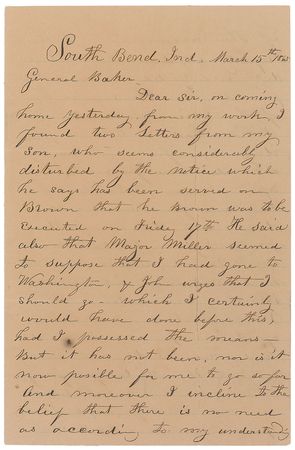 South Bend, Ind, March 15th
General Baker
Dear Sir, on coming
home yesterday from my work, I
found two Letters from my
Son, who seems considerably
disturbed by the notice which
he says has been served on
Brown that he Brown was to be
executed on Friday 17th He said
also that Major Miller seemed
to suppose that I had gone to
Washington, & John urges that I
should go - which I certainly
would have done before this,
had I possessed the means -
But it has not been, nor is it
now posible for me to go so far
And moreover I incline to the
belief that there is no need
as according to my understanding